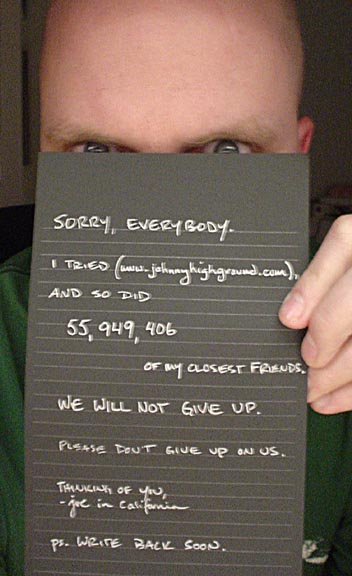 SORRY, EVERYBODY.
I TRIED (www.johnnyhighground.com),
AND SO DID
55,949,406
OF MY CLOSEST FRIENDS.
WE WILL NOT GIVE UP.
PLEASE DON'T GIVE UP ON US.
THINKING OF YOU,
-joe in California
ps. WRITE BACK SOON.